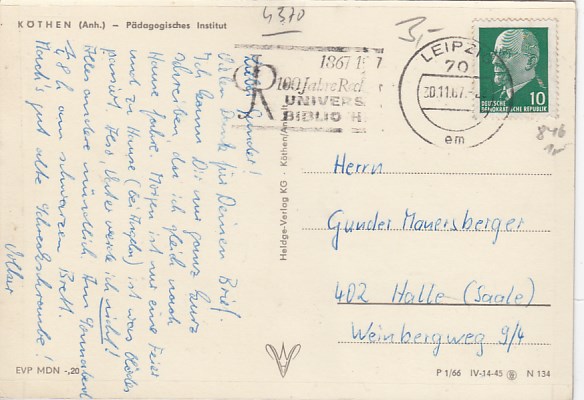 4370
3,-
KÖTHEN (Anh.) – Pädagogisches Institut
1867 1967
100 Jahre Recl
UNIVERS
BIBLIOTH
LEIPZIG
70
30.11.67
em
10
DEUTSCHE
DEMOKRATISCHE REPUBLIK
846
Lieber Gunder!
Vielen Dank für Deinen Brief.
Ich kann Dir nur ganz kurz
schreiben, da ich gleich nach
Hause fahre. Morgen ist nur eine Feier
und zu Hause ist was Blödes
passiert. Also, werde ich nicht!
Alles andere mündlich. Am Sonnabend
18 h am schwarzen Brett.
Mach's gut alte
Volker
Heldge-Verlag KG · Köthen/Anhalt
Herrn
Gunder Mauersberger
402 Halle (Saale)
Weinbergweg 9/4
EVP MDN -,20
P 1/66 IV-14-45 N 134